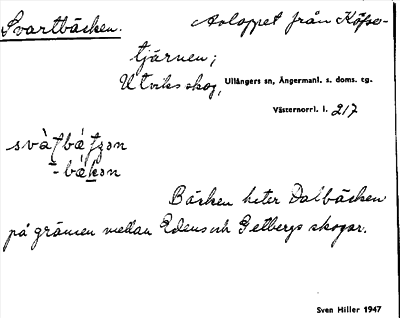 Svartbäcken. Avloppet från Köpse-
tjärnen;
Utviks skog, Ullångers sn, Ångermanl. s. doms. tg.
Västernorrl. l. 217
Bäcken heter Dalbäcken
på gränsen mellan Edens och Getbergs skogar.
Sven Hiller 1947